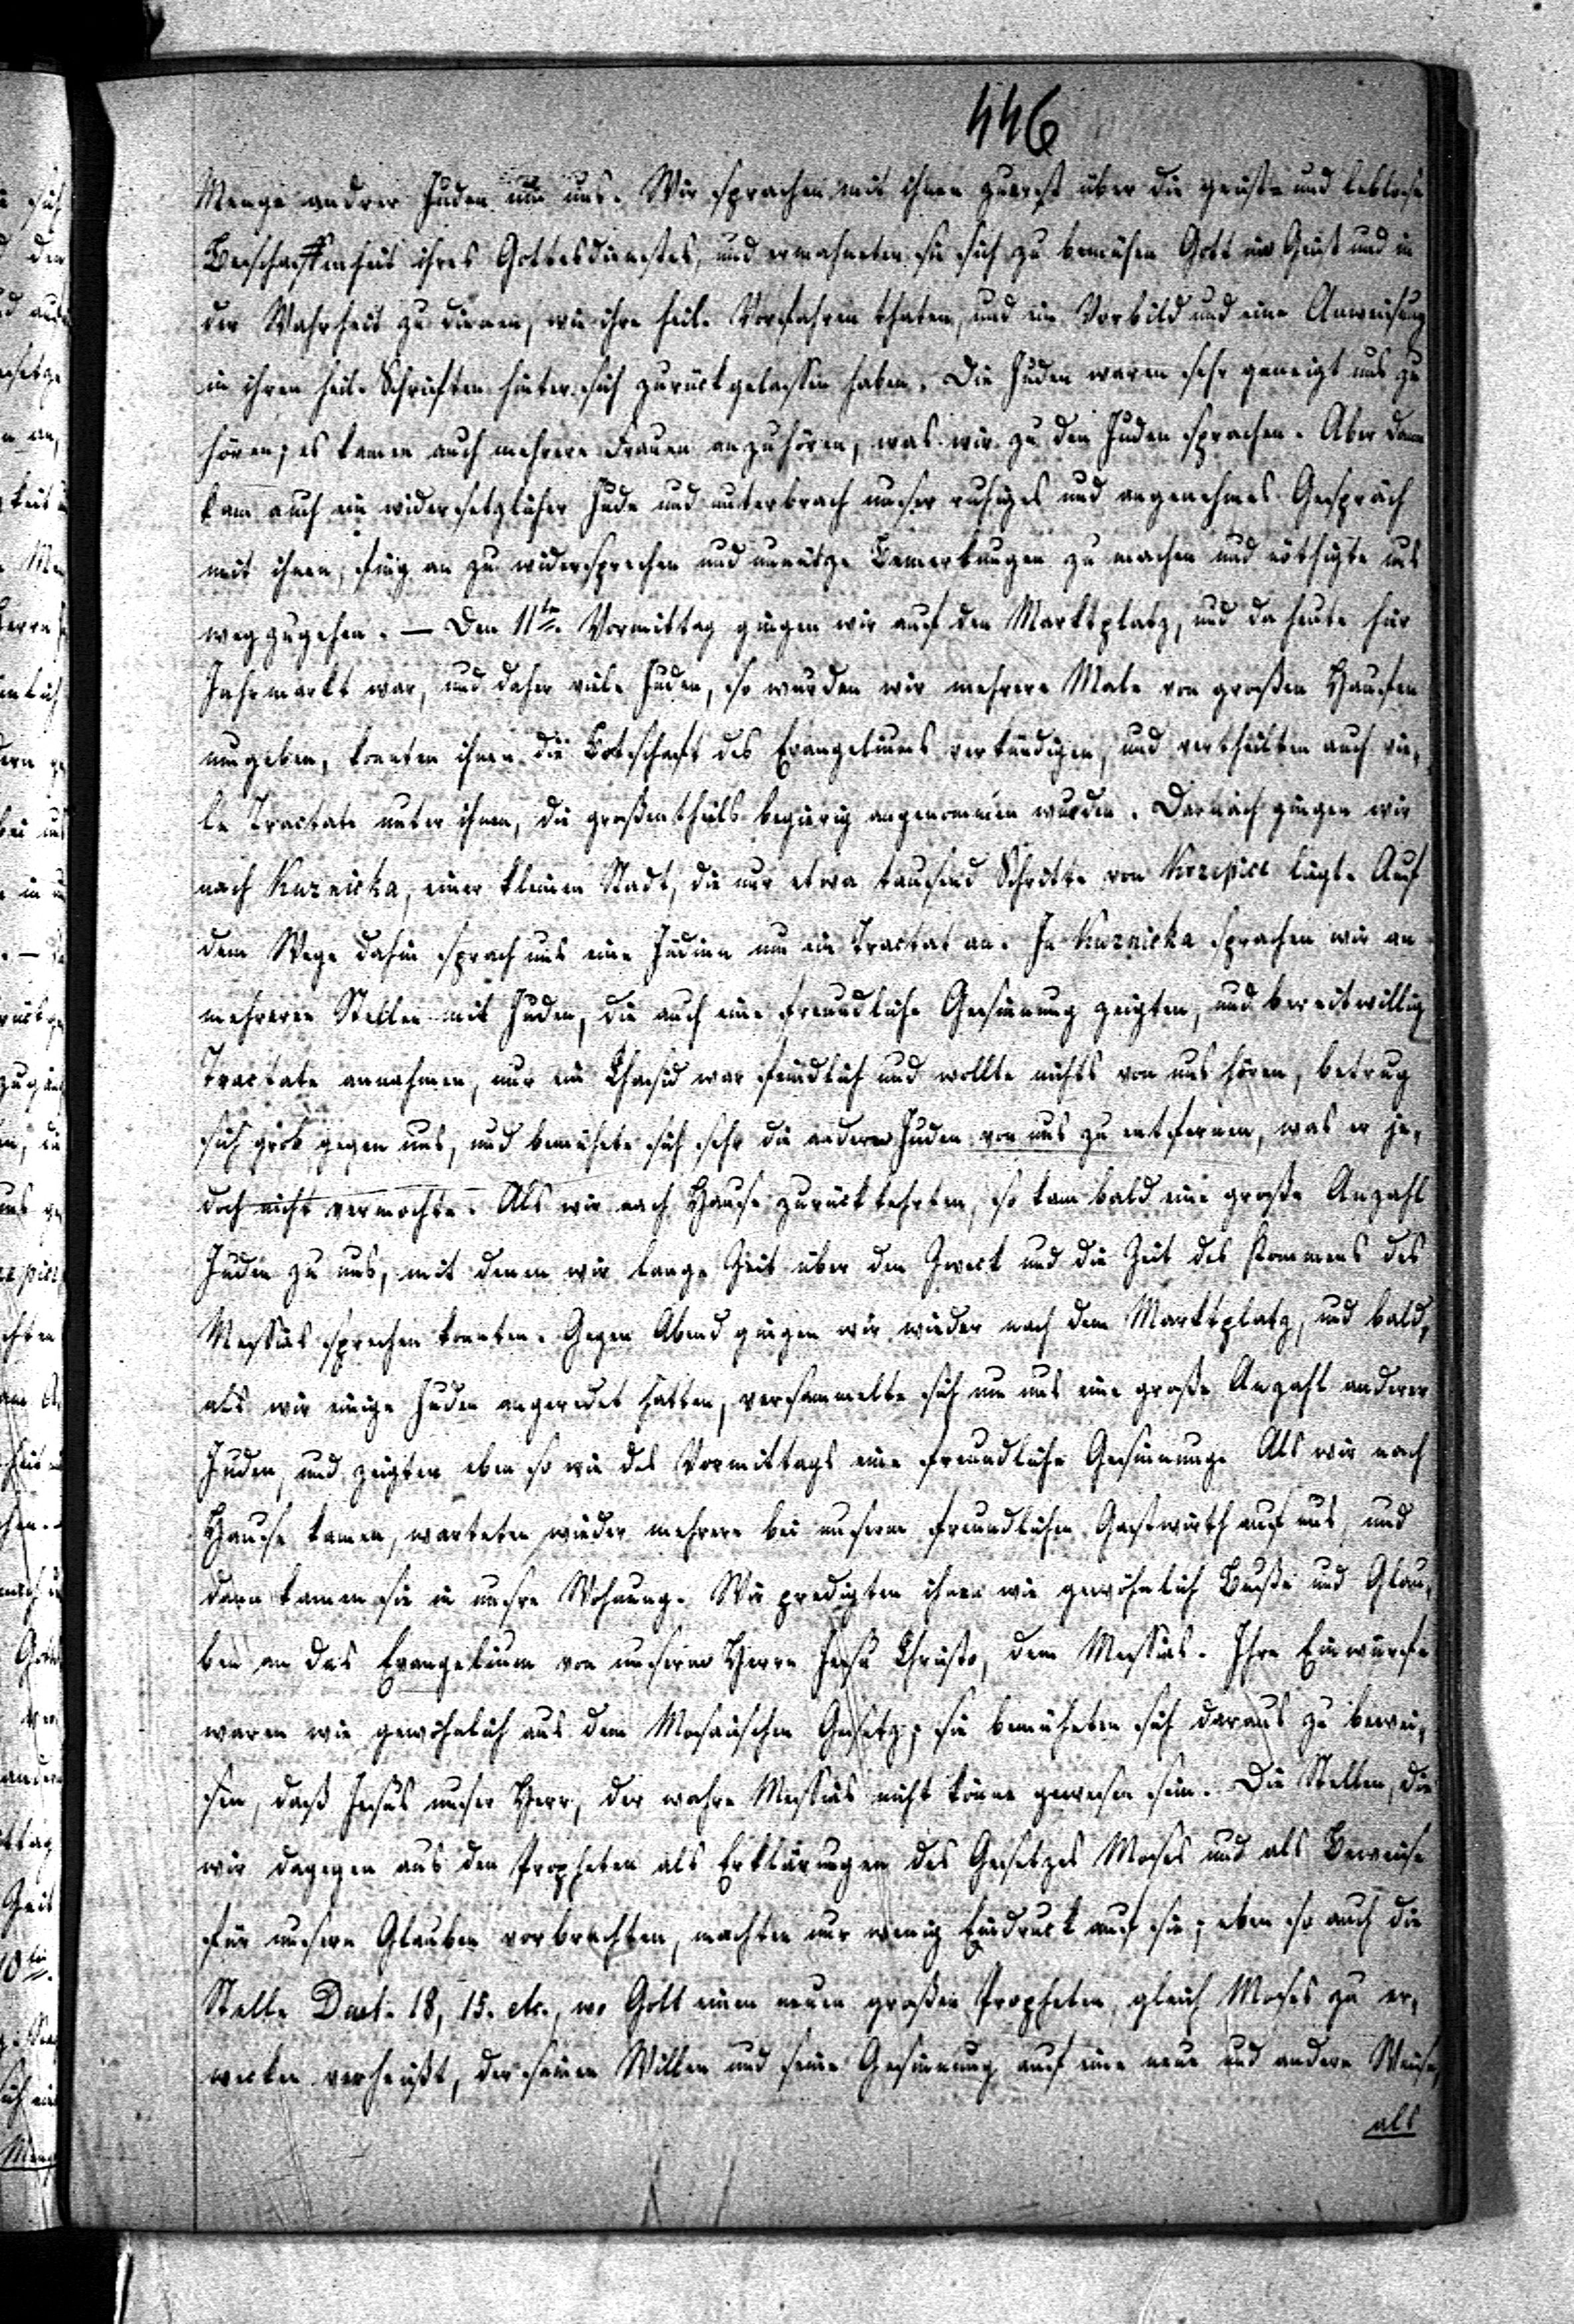 446
Menge andrer Juden um uns. Wir sprachen mit ihnen zuerst über die geist- und leblose
Beschaffenheit ihres Gottesdienstes, und ermahneten sie sich zu bemühen Gott im Geist und in
der Wahrheit zu dienen, wie ihre heil. Vorfahren thaten, und ein Vorbild und eine Anweisung
in ihren heil. Schriften hinter sich zurückgelassen haben. Die Juden waren sehr geneigt uns zu
hören; es kamen auch mehrere Frauen anzuhören, was wir zu den Juden sprachen. Aber dann
kam auch ein widersetzlicher Jude und unterbrach unser ruhiges und angenehmes Gespräch
mit ihnen, fing an zu widersprechen und unnütze Bemerkungen zu machen und nöthigte uns
wegzugehen. — Den 11ten. Vormittag gingen wir auf den Marktplatz, und da heute hier
Jahrmarkt war, und daher viele Juden, so wurden wir mehrere Male von großen Haufen
umgeben, konnten ihnen die Botschaft des Evangeliums verkündigen, und vertheilten auch vie-
le Tractate unter ihnen, die großentheils begierig angenommen wurden. Darnach gingen wir
nach Kuznicka, einer kleinen Stadt, die nur etwa tausend Schritte von Krzepice liegt. Auf
dem Wege dahin sprach uns eine Jüdinn um ein Tractat an. In Kuznicka sprachen wir an
mehreren Stellen mit Juden, die auch eine freundliche Gesinnung zeigten, und bereitwillig
Tractate annahmen, nur ein Chasid war feindlich und wollte nichts von uns hören, betrug
sich grob gegen uns, und bemühete sich sehr die andern Juden von uns zu entfernen, was er je-
doch nicht vermochte. Als wir nach Hause zurückkehrten, so kam bald eine große Anzahl
Juden zu uns, mit denen wir lange Zeit über den Zweck und die Zeit des Kommens des
Messias sprechen konnten. Gegen Abend gingen wir wieder nach dem Marktplatz, und bald,
als wir einige Juden angeredet hatten, versammelte sich um uns eine große Anzahl anderer
Juden, und zeigten eben so wie des Vormittags eine freundliche Gesinnung. Als wir nach
Hause kamen, warteten wieder mehrere bei unserm freundlichen Gastwirth auf uns, und
dann kamen sie in unsre Wohnung. Wir predigten ihnen wie gewöhnlich Buße und Glau-
ben an das Evangelium von unserm Herrn Jesu Christo, dem Messias. Ihre Einwürfe
waren wie gewöhnlich aus dem Mosaischen Gesetz; sie bemüheten sich daraus zu bewei-
sen, daß Jesus unser Herr, der wahre Messias nicht könne gewesen sein. Die Stellen, die
wir dagegen aus den Propheten als Erklärungen des Gesetzes Moses und als Beweise
für unsern Glauben vorbrachten, machten nur wenig Eindruck auf sie; eben so auch die
Stelle Deut. 18, 15. etc., wo Gott einen neuen großen Propheten, gleich Moses zu er-
wecken verheißt, der seinen Willen und seine Gesinnung auf eine neue und andere Weise,
als